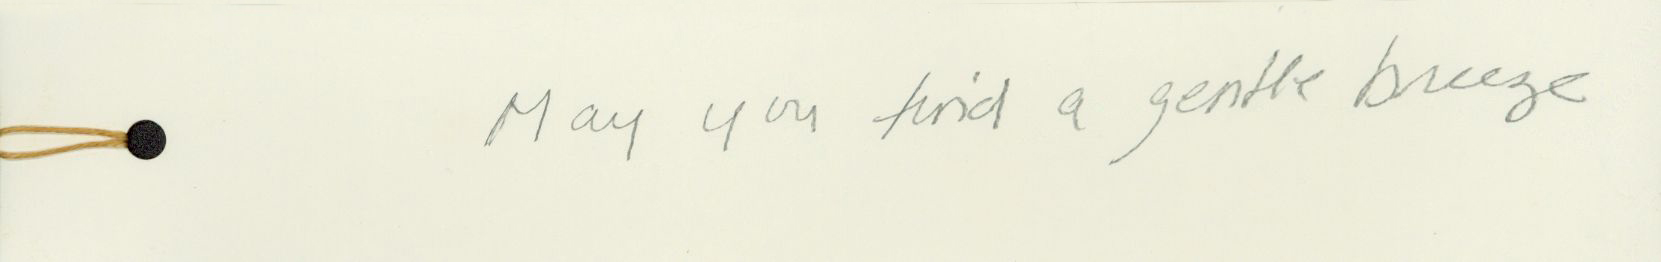 May you find a gentle breeze